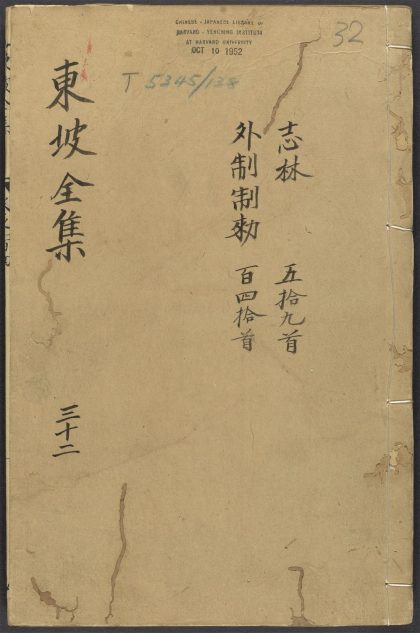 CHINESE - JAPANESE LIBRARY OF
HARVARD - YENCHING INSTITUTE
AT HARVARD UNIVERSITY
OCT 10 1952
32
T 5345/138
志林 五拾九首
外制制勅 百四拾首
東坡全集 三十二